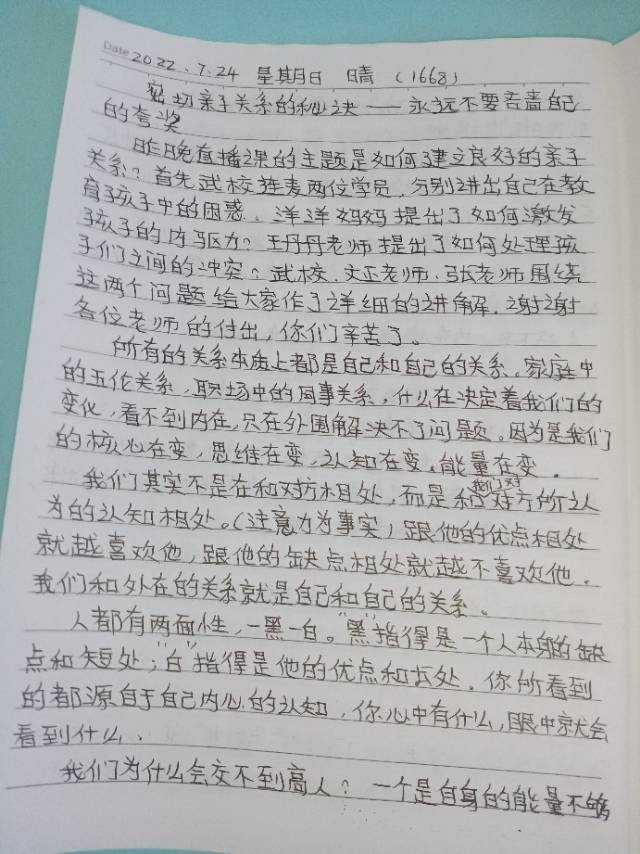 Date 2022.7.24 星期日 晴 (1668)
密切亲子关系的秘诀——永远不要吝啬自己
的夸奖
昨晚直播课的主题是如何建立良好的亲子
关系？首先武校连麦两位学员，分别讲出自己在教
育孩子中的困惑。洋洋妈妈提出了如何激发
孩子的内驱力？王丹丹老师提出了如何处理孩
子们之间的冲突？武校、文正老师、张老师围绕
这两个问题给大家作了详细的讲解，谢谢
各位老师的付出，你们辛苦了。
所有的关系本质上都是自己和自己的关系。家庭中
的五伦关系，职场中的同事关系，什么在决定着我们的
变化，看不到内在，只在外围解决不了问题。因为是我们
的核心在变，思维在变，认知在变，能量在变。
我们其实不是在和对方相处，而是和我们对对方所认
为的认知相处。（注意力为事实）跟他的优点相处
就越喜欢他，跟他的缺点相处就越不喜欢他。
我们和外在的关系就是自己和自己的关系。
人都有两面性，一黑一白。“黑”指得是一个人本身的缺
点和短处；“白”指得是他的优点和长处。你所看到
的都源自于自己内心的认知，你心中有什么，眼中就会
看到什么。
我们为什么会交不到高人？一个是自身的能量不够